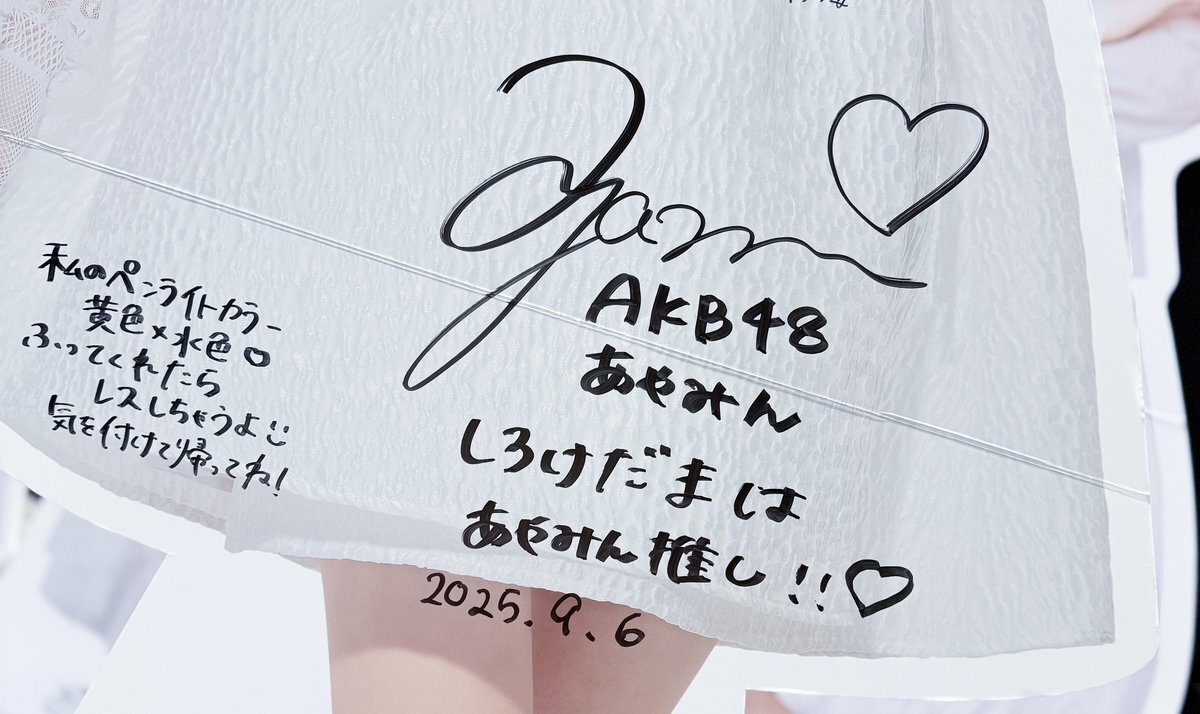 私のペンライトカラー
黄色×水色♡
ふってくれたら
レスしちゃうよ
気を付けて帰ってね!
AKB48
あやみん
しろけだまは
あやみん推し!!♡
2025.9.6